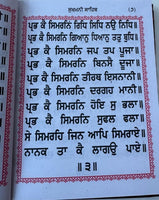 ਸੁਖਮਨੀ ਸਾਹਿਬ (੭)
ਪ੍ਰਭ ਕੈ ਸਿਮਰਨਿ ਰਿਧਿ ਸਿਧਿ ਨਉ ਨਿਧਿ॥
ਪ੍ਰਭ ਕੈ ਸਿਮਰਨਿ ਗਿਆਨੁ ਧਿਆਨੁ ਤਤੁ ਬੁਧਿ॥
ਪ੍ਰਭ ਕੈ ਸਿਮਰਨਿ ਜਪ ਤਪ ਪੂਜਾ॥
ਪ੍ਰਭ ਕੈ ਸਿਮਰਨਿ ਬਿਨਸੈ ਦੂਜਾ॥
ਪ੍ਰਭ ਕੈ ਸਿਮਰਨਿ ਤੀਰਥ ਇਸਨਾਨੀ॥
ਪ੍ਰਭ ਕੈ ਸਿਮਰਨਿ ਦਰਗਹ ਮਾਨੀ॥
ਪ੍ਰਭ ਕੈ ਸਿਮਰਨਿ ਹੋਇ ਸੁ ਭਲਾ॥
ਪ੍ਰਭ ਕੈ ਸਿਮਰਨਿ ਸੁਫਲ ਫਲਾ॥
ਸੇ ਸਿਮਰਹਿ ਜਿਨ ਆਪਿ ਸਿਮਰਾਏ॥
ਨਾਨਕ ਤਾ ਕੈ ਲਾਗਉ ਪਾਏ॥
॥੩॥